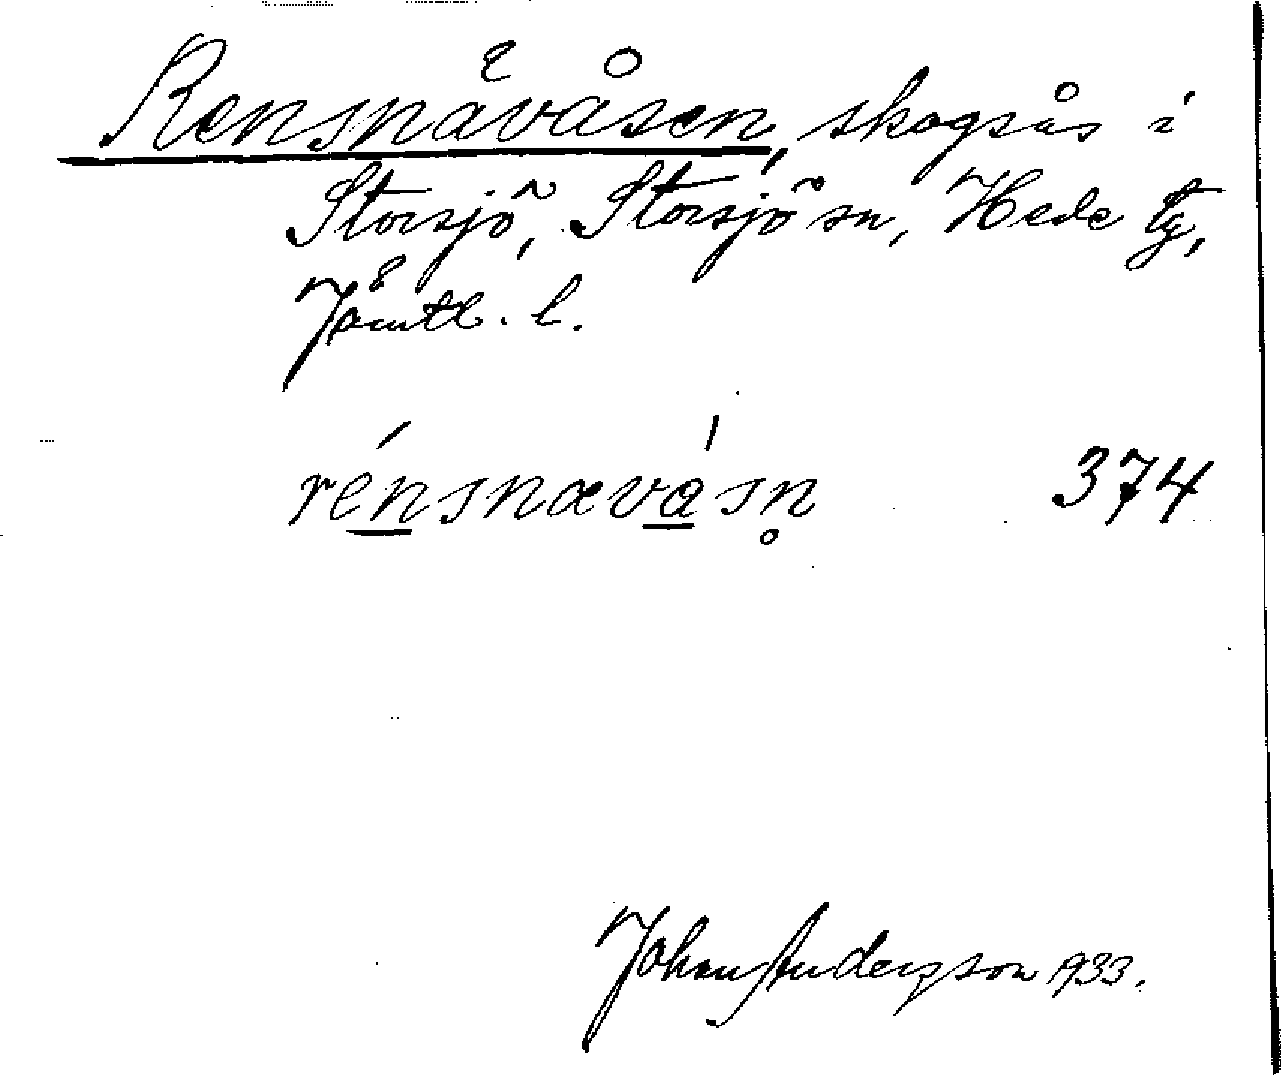 Rensnävåsen, skogsås i
Storsjö, Storsjö sn, Hede tg,
Jämtl. l.
rénsnævásn̥ 374
Johan Anderzson 1933.